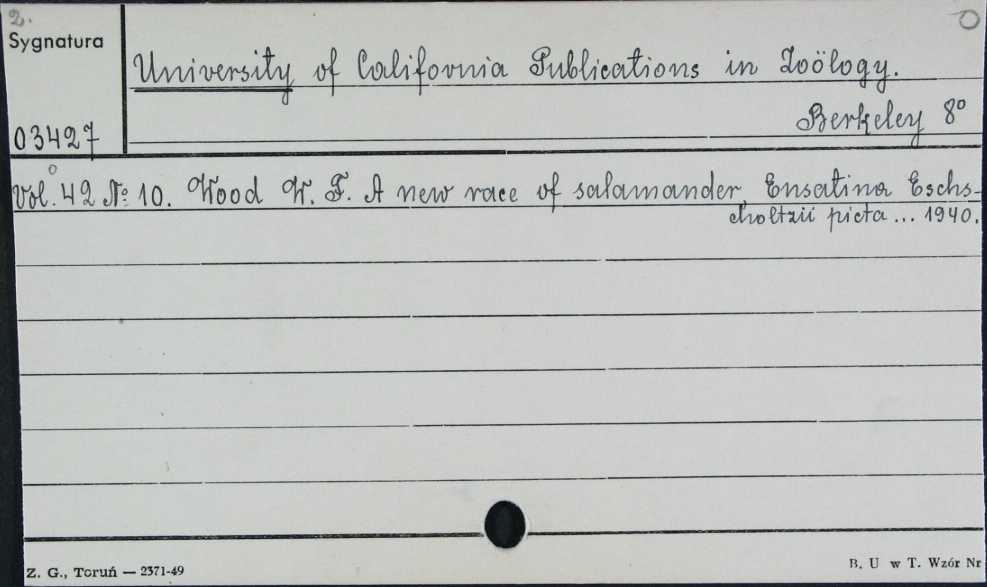 2.
Sygnatura
University of California Publications in Zoölogy.
Berkeley 8°
03427
Vol. 42 № 10. Wood W. F. A new race of salamander, Ensatina Eschs-
choltzii picta ... 1940.
Z. G., Toruń — 2371-49
B. U w T. Wzór Nr